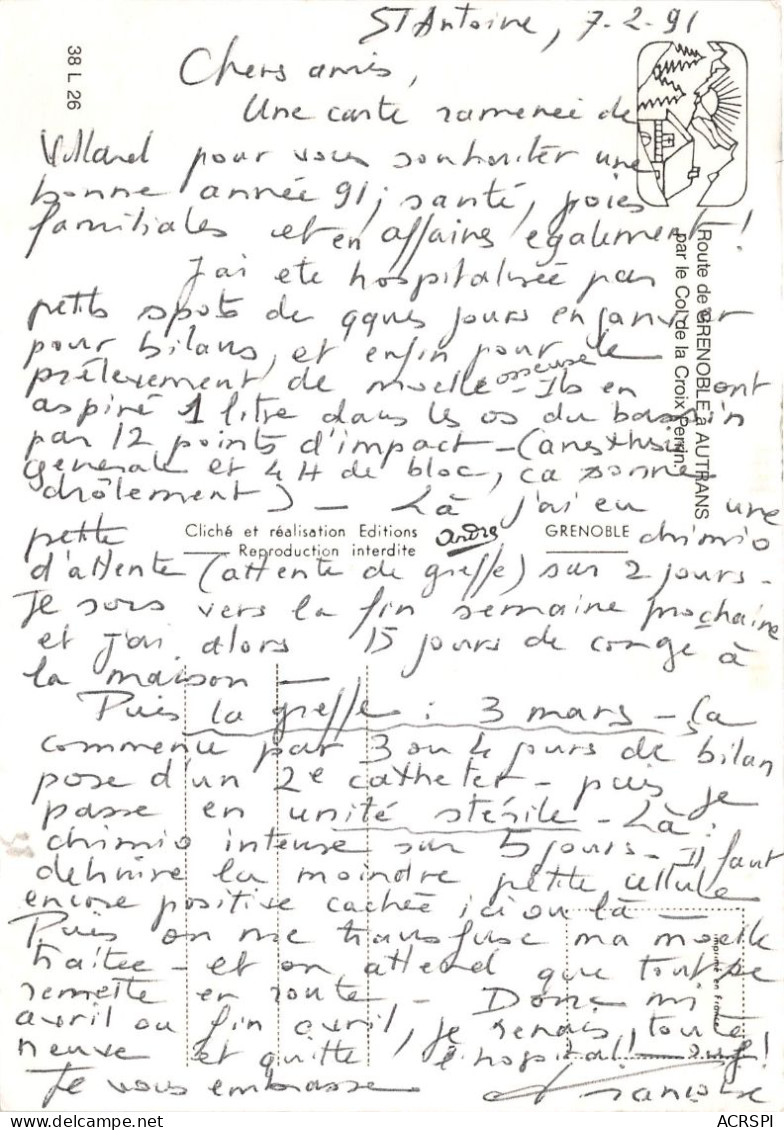 St Antoine, 7.2.91
Chers amis,
Une carte ramenée de
Villard pour vous souhaiter une
bonne année 91; santé, joies
familiales et en affaires également!
J'ai été hospitalisée par
petits spots de qques jours en janvier
pour bilans, et enfin pour le
prélèvement de moelle osseuse - Ils en ont
aspiré 1 litre dans les os du bassin
par 12 points d'impact - (anesthésie
générale et 4H de bloc, ça sonne
drôlement) - Là j'ai eu une
petite chimio
d'attente (attente de greffe) sur 2 jours -
Je sors vers la fin semaine prochaine
et j'ai alors 15 jours de congé à
la maison -
Puis la greffe : 3 mars - Ça
commence par 3 ou 4 jours de bilan
pose d'un 2e catheter - puis je
passe en unité stérile - Là :
chimio intense sur 5 jours - Il faut
détruire la moindre petite cellule
encore positive cachée ici ou là -
Puis on me transfuse ma moelle
traitée - et on attend que tout se
remette en route - Donc mi
avril ou fin avril, je renais, toute
neuve et quitte l'hospital!
Je vous embrasse Françoise
38 L 26
Route de GRENOBLE à AUTRANS
par le Col de la Croix Perrin.
Cliché et réalisation Editions André GRENOBLE
Reproduction interdite
Imprimé en France
ACRSPI